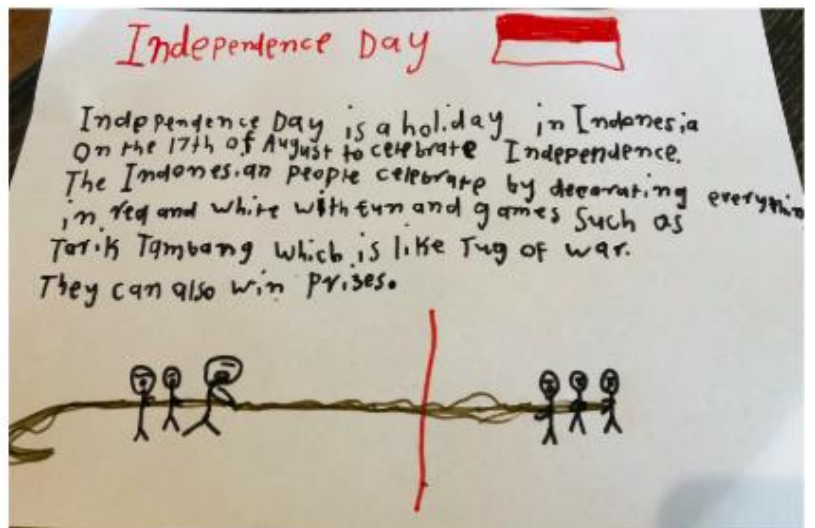 Independence Day
Independence Day is a holiday in Indonesia
On the 17th of August to celebrate Independence.
The Indonesian people celebrate by decorating everythin
in red and white with fun and games Such as
Tarik Tambang which is like Tug of war.
They can also win prises.